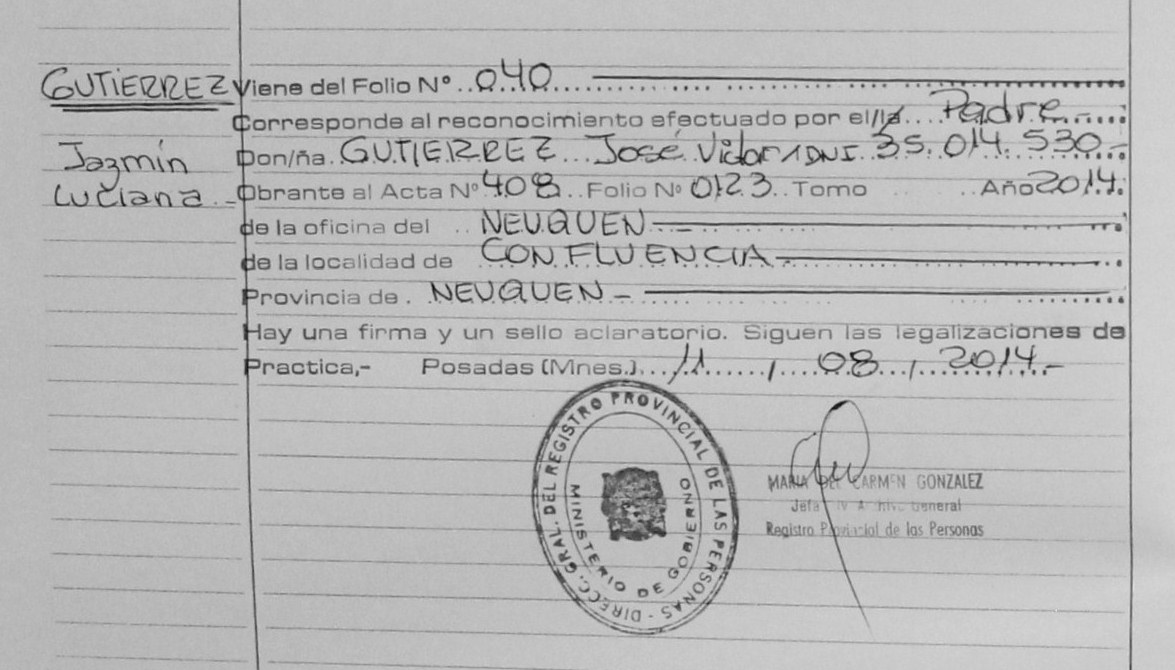 GUTIERREZ Viene del Folio Nº 040
Corresponde al reconocimiento efectuado por el/la Padre
Jazmín Don/ña. GUTIERREZ José Victor DNI 35.014.530-
Luciana - Obrante al Acta Nº 408 Folio Nº 0123 Tomo Año 2014.
de la oficina del NEUQUEN -
de la localidad de CONFLUENCIA -
Provincia de. NEUQUEN -
Hay una firma y un sello aclaratorio. Siguen las legalizaciones de
Practica,- Posadas (Mnes.) 11 / 08 / 2014.-
DIRECC. GRAL. DEL REGISTRO PROVINCIAL DE LAS PERSONAS -
MINISTERIO DE GOBIERNO
MARIA DEL CARMEN GONZALEZ
Jefa Archivo General
Registro Provincial de las Personas